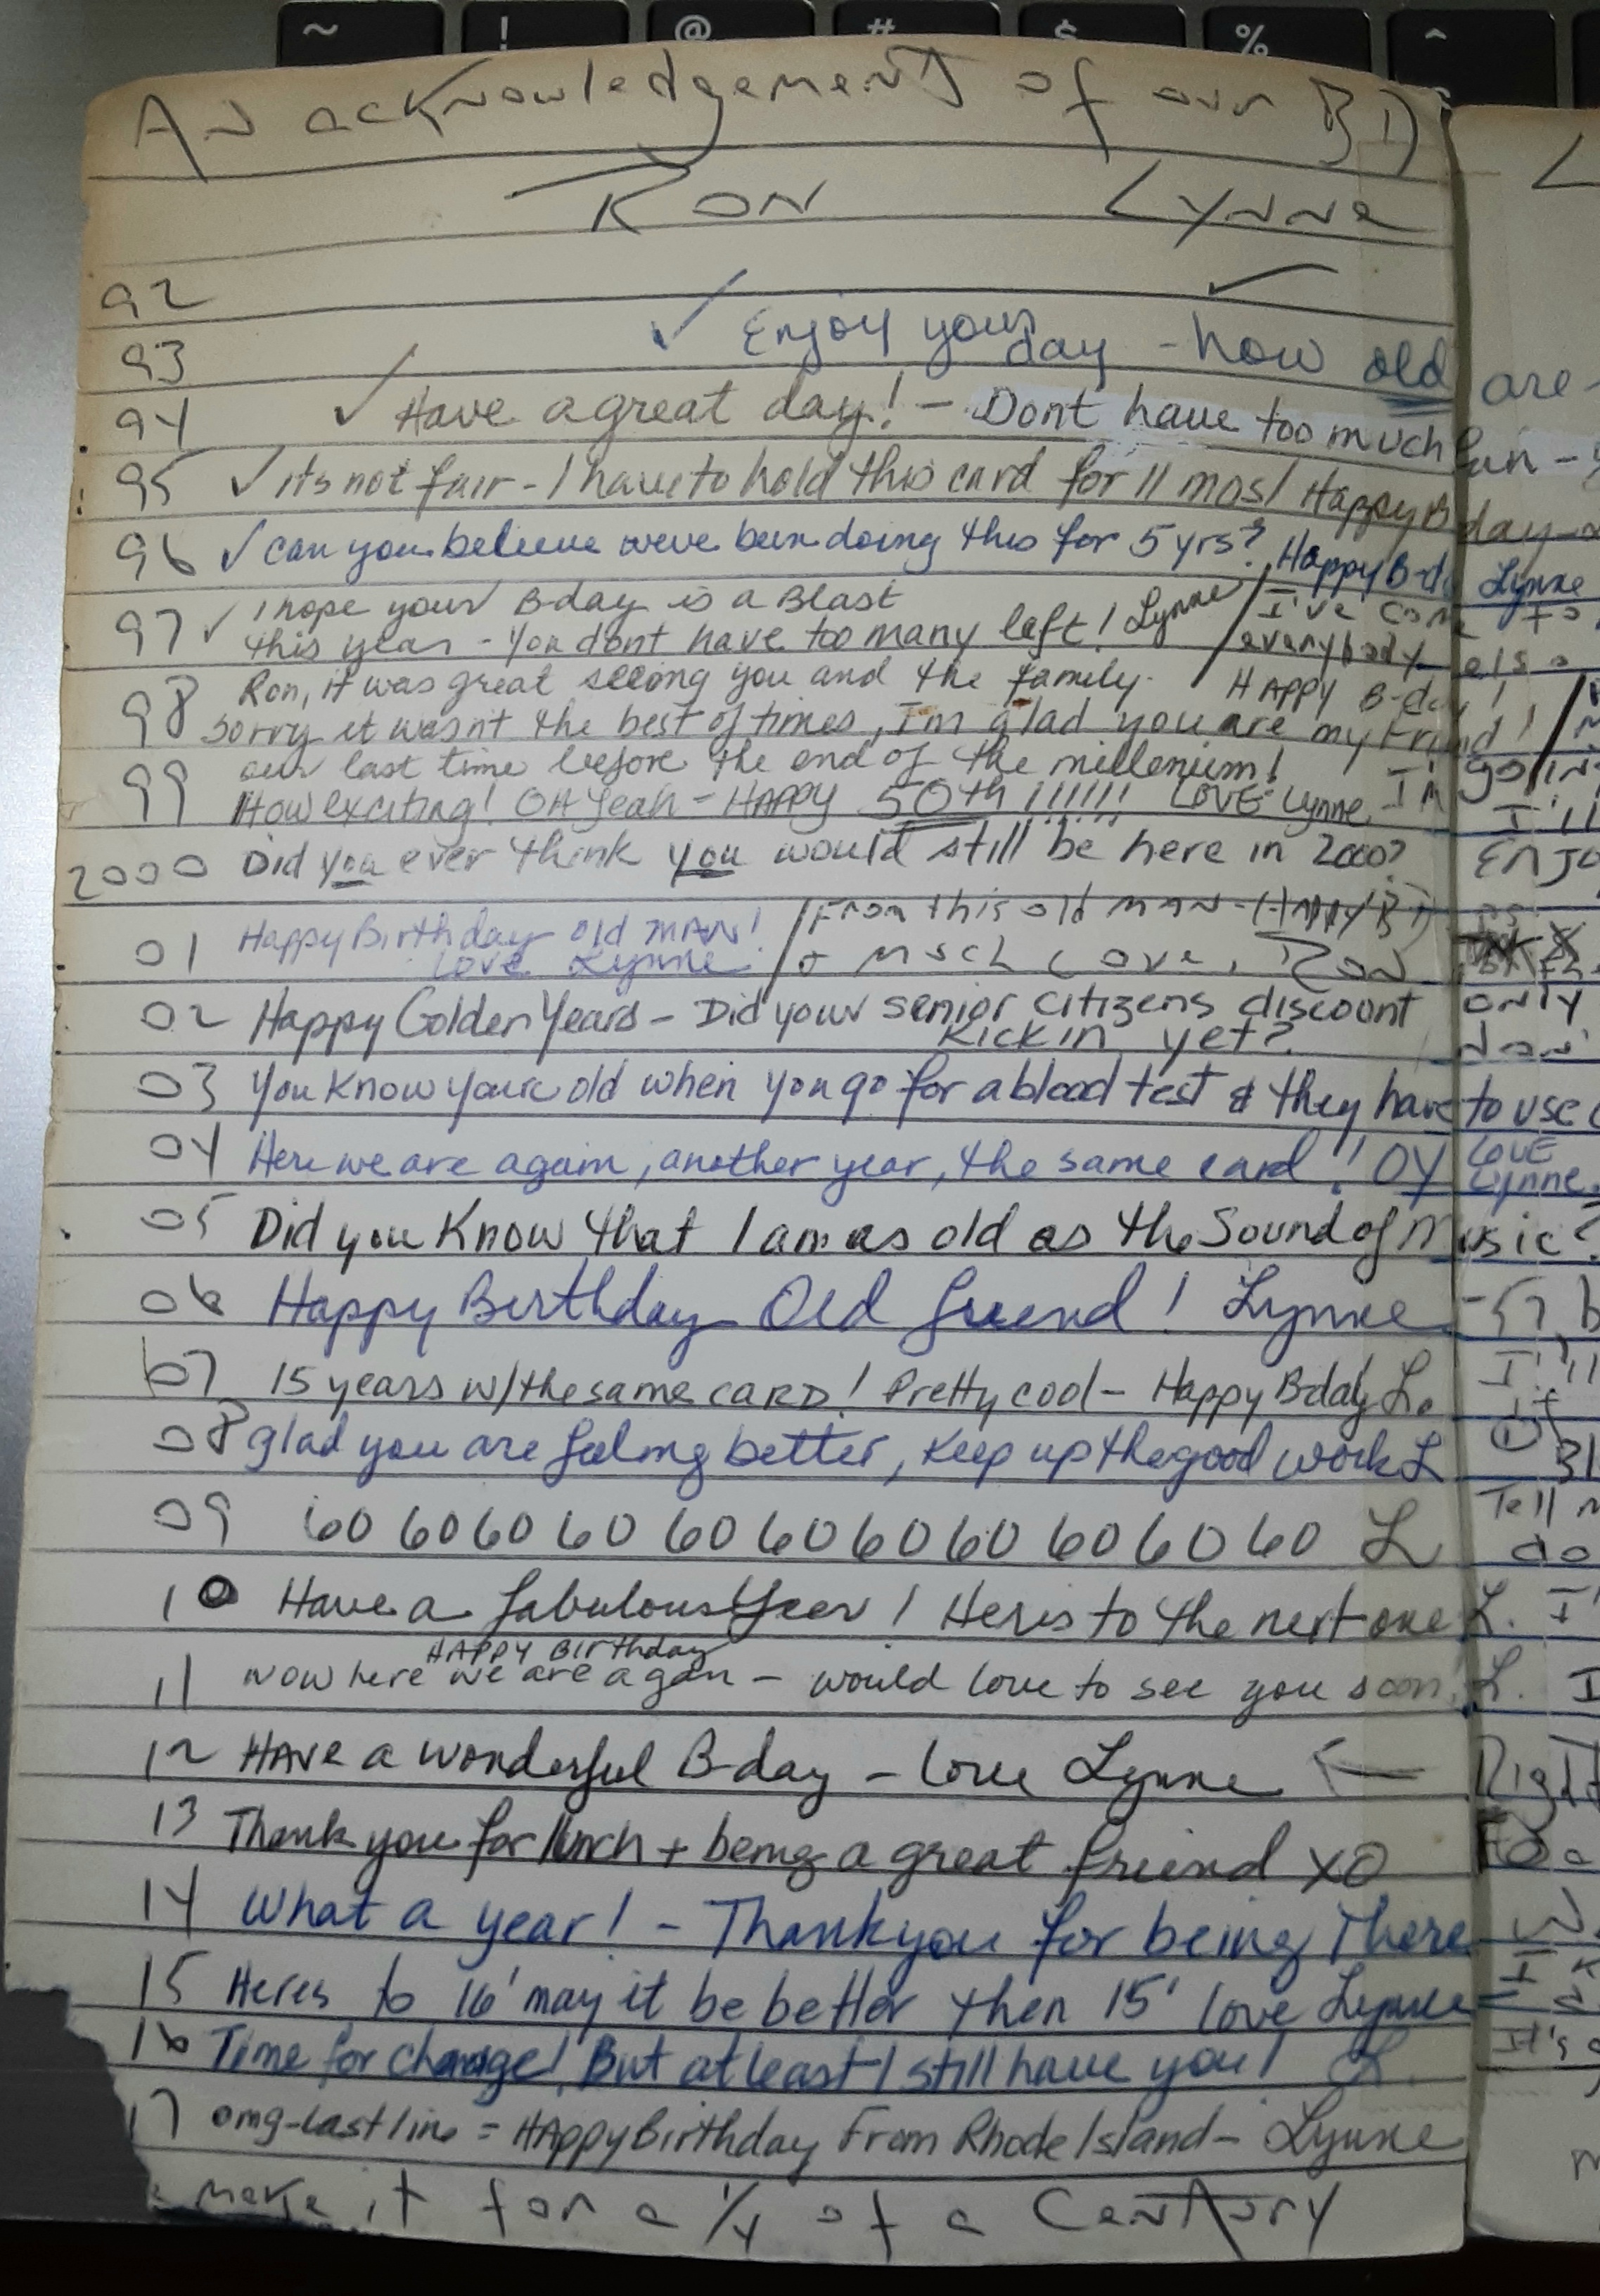 ~ ! @ # $ % ^
An acknowledgement of our BD
Ron Lynne
92 ✓
93 ✓ Enjoy your day - how old are
94 ✓ Have a great day! - Dont have too much fun -
95 ✓ its not fair - I have to hold this card for 11 mos! Happy Bday -
96 ✓ can you believe weve been doing this for 5 yrs? Happy B-da Lynne
97 ✓ I hope your B-day is a Blast
this year - You dont have too many left! Lynne / I've come to
everybody else
98 Ron, it was great seeing you and the family. Happy B-day!
Sorry it wasn't the best of times, I'm glad you are my friend!
99 our last time before the end of the millenium!
How exciting! OH Yeah - HAPPY 50th !!!!!! LOVE Lynne I'm going
I'll
2000 Did you ever think you would still be here in 2000? ENJO
01 Happy Birthday old MAN! / From this old man - Happy BD
Love Lynne / + Much Love, Ron
02 Happy Golden Years - Did your senior citizens discount only
Kick in yet? don'
03 You Know youre old when you go for a blood test & they have to use
04 Here we are again, another year, the same card! OY Love
Lynne
05 Did you Know that I am as old as the Sound of Music?
06 Happy Birthday Old friend! Lynne - 57, b
07 15 years w/ the same CARD! Pretty cool - Happy Bday L. I'll
08 glad you are feeling better, Keep up the good work L 31
Tell m
09 60 60 60 60 60 60 60 60 60 60 60 L do
10 Have a fabulous Year! Heres to the next one L. I'
HAPPY Birthday
11 Now here we are again - would love to see you soon! L. I
12 HAVE a wonderful B-day - love Lynne ← Right
13 Thank you for lunch + being a great friend XO
14 What a year! - Thank you for being There
15 Heres to 16' may it be better then 15' love Lynne -
16 Time for change! But at least I still have you! L. It's
17 omg - last line = HAppy Birthday From Rhode Island - Lynne
make it for a 1/4 of a Century